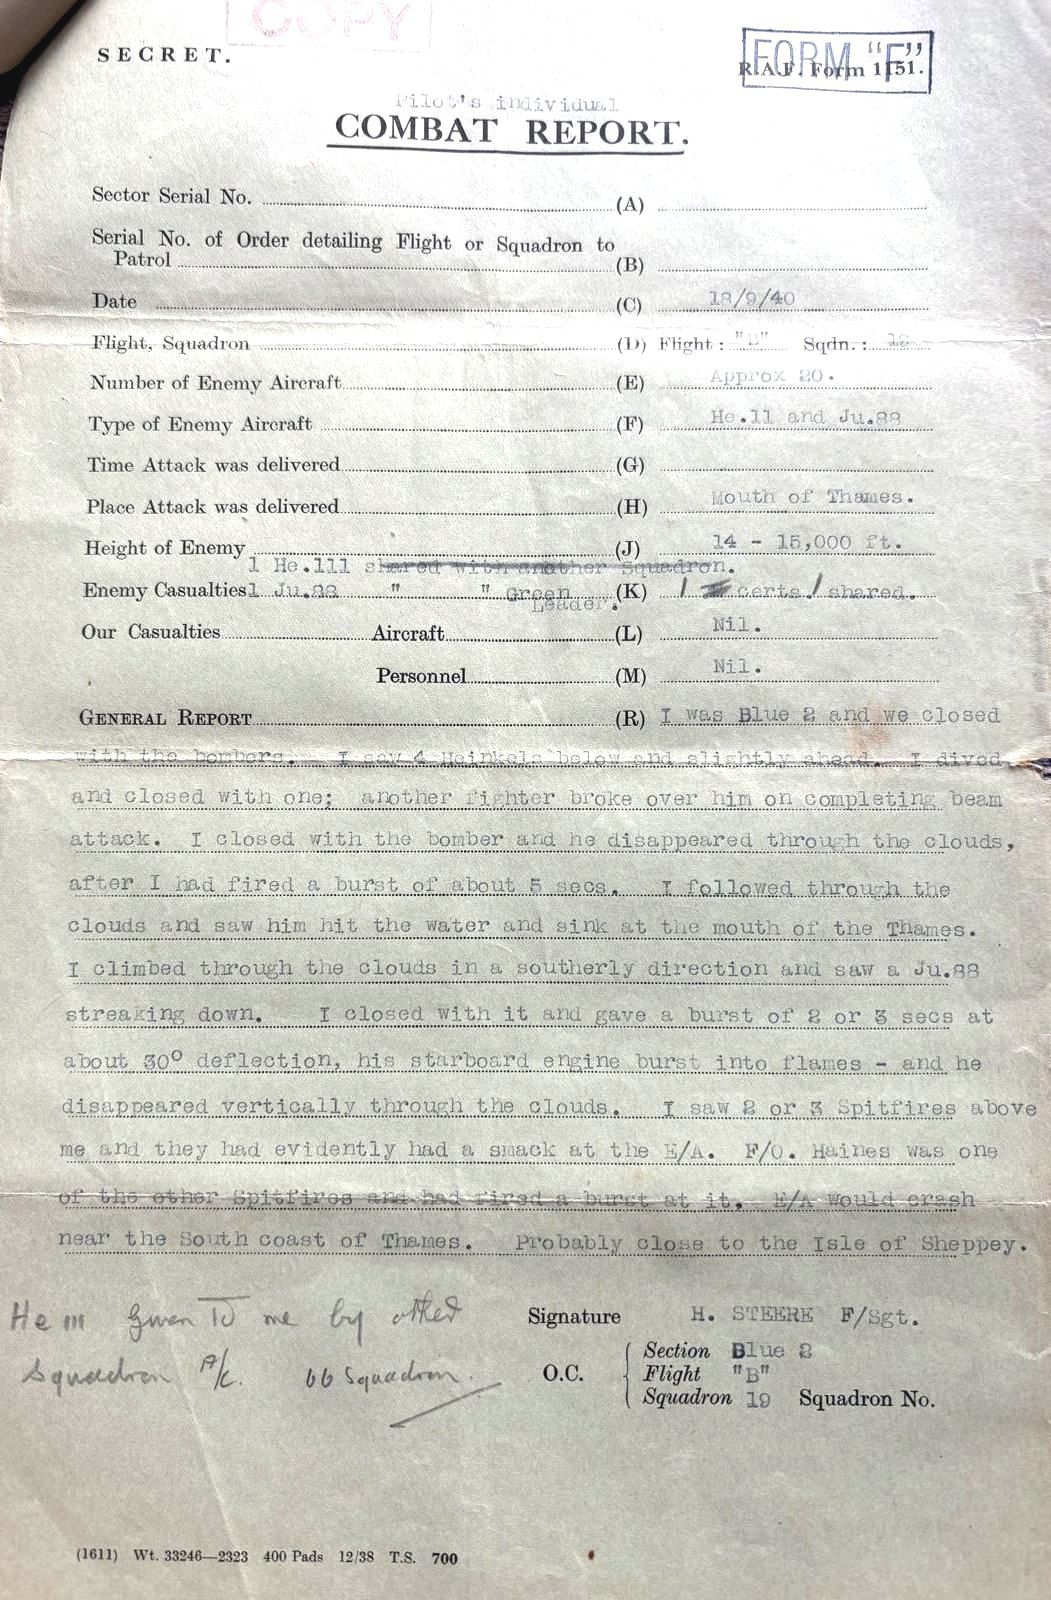 COPY
SECRET.
FORM "F"
R.A.F. Form 1151.
Pilot's individual
COMBAT REPORT.
Sector Serial No. (A)
Serial No. of Order detailing Flight or Squadron to
Patrol (B)
Date (C) 18/9/40
Flight, Squadron (D) Flight : "B" Sqdn. : 19
Number of Enemy Aircraft (E) Approx 20.
Type of Enemy Aircraft (F) He.11 and Ju.88
Time Attack was delivered (G)
Place Attack was delivered (H) Mouth of Thames.
Height of Enemy (J) 14 - 15,000 ft.
1 He.111 shared with another Squadron.
Enemy Casualties 1 Ju.88 " " Green (K) 1 certs / shared.
Leader.
Our Casualties Aircraft (L) Nil.
Personnel (M) Nil.
GENERAL REPORT (R) I was Blue 2 and we closed
with the bombers. I saw 4 Heinkels below and slightly ahead. I dived
and closed with one; another fighter broke over him on completing beam
attack. I closed with the bomber and he disappeared through the clouds,
after I had fired a burst of about 5 secs. I followed through the
clouds and saw him hit the water and sink at the mouth of the Thames.
I climbed through the clouds in a southerly direction and saw a Ju.88
streaking down. I closed with it and gave a burst of 2 or 3 secs at
about 30° deflection, his starboard engine burst into flames - and he
disappeared vertically through the clouds. I saw 2 or 3 Spitfires above
me and they had evidently had a smack at the E/A. F/O. Haines was one
of the other Spitfires and had fired a burst at it. E/A would crash
near the South coast of Thames. Probably close to the Isle of Sheppey.
He 111 given to me by other
Squadron A/c. 66 Squadron.
Signature H. STEERE F/Sgt.
O.C. Section Blue 2
Flight "B"
Squadron 19 Squadron No.
(1611) Wt. 33246—2323 400 Pads 12/38 T.S. 700